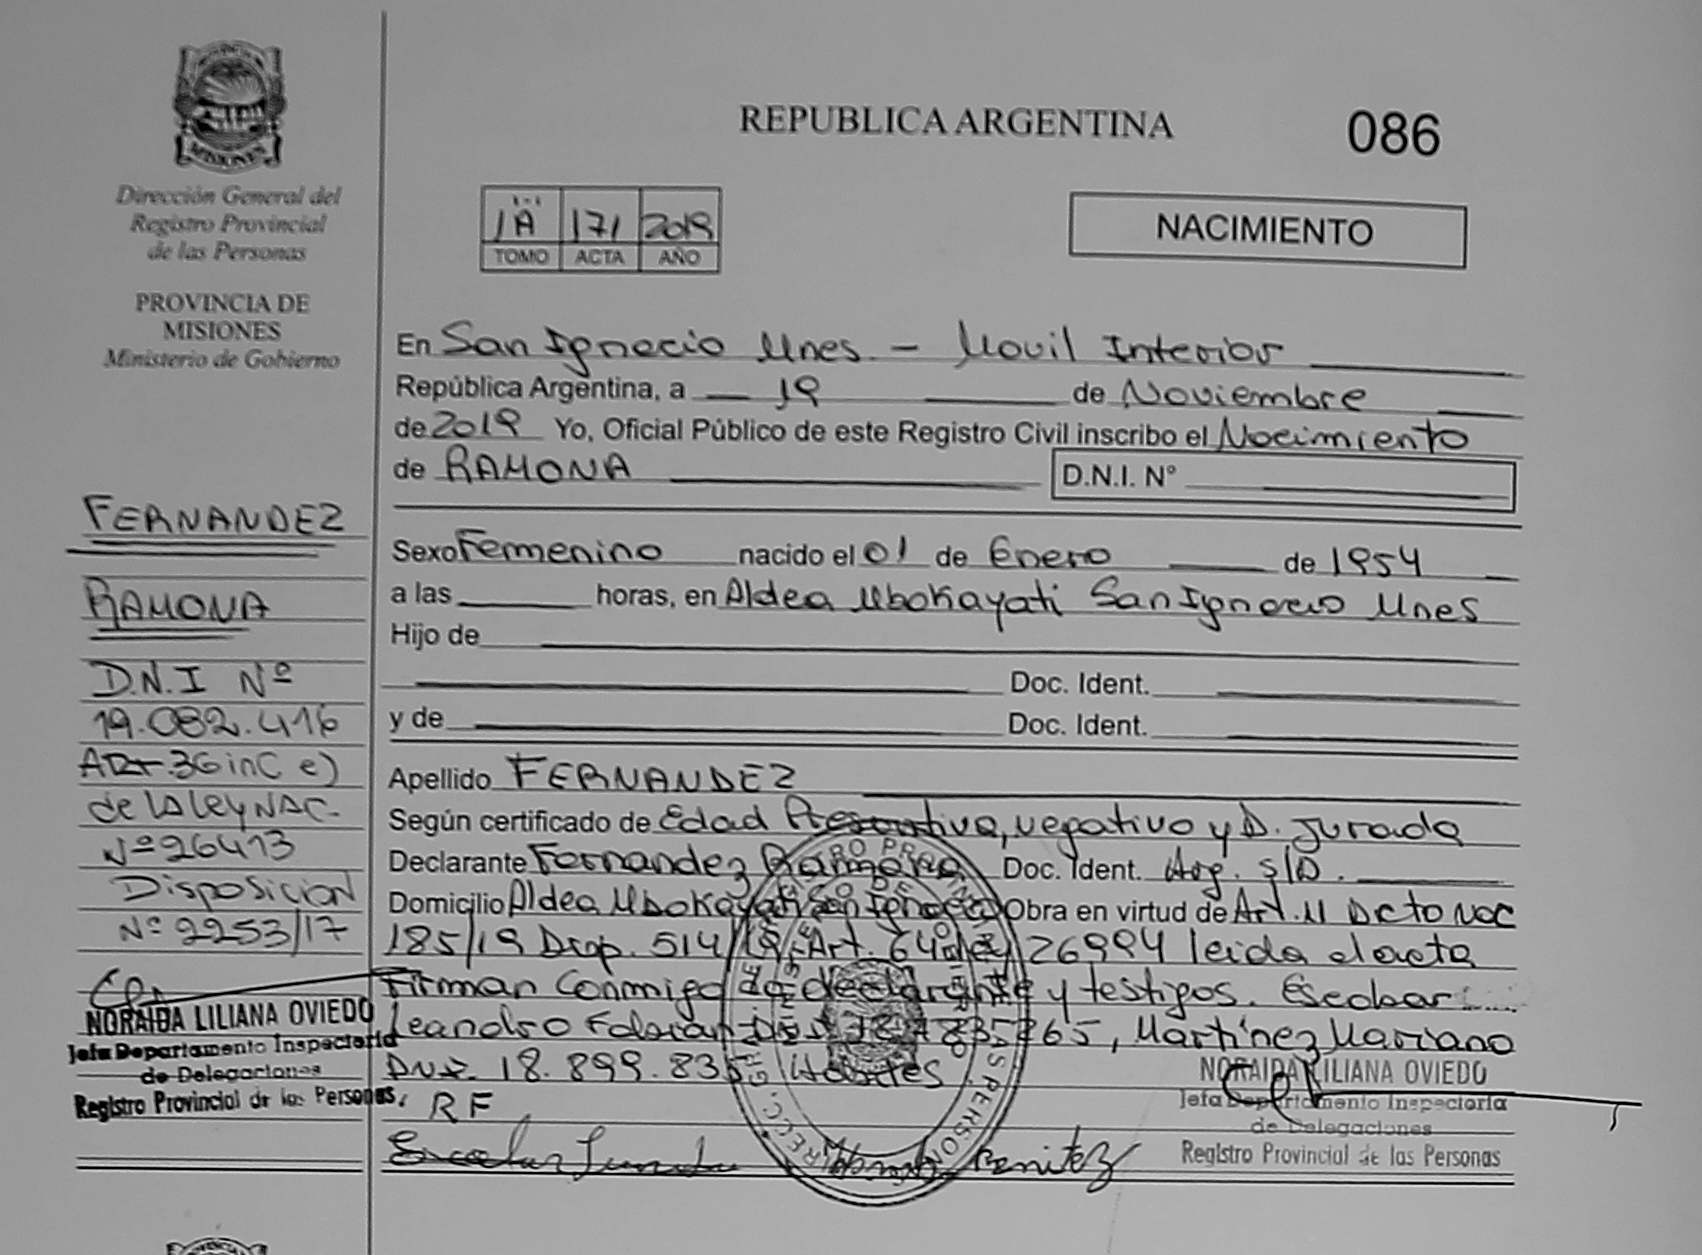 MISIONES
Dirección General del
Registro Provincial
de las Personas
PROVINCIA DE
MISIONES
Ministerio de Gobierno
FERNANDEZ
RAMONA
D.N.I Nº
19.082.416
ART.36 inC e)
de lA leY NAC.
Nº 26413
Disposicion
Nº 2253/17
NORAIDA LILIANA OVIEDO
Jefa Departamento Inspectoria
de Delegaciones
Registro Provincial de las Personas
REPUBLICA ARGENTINA
086
1A 171 2019
TOMO ACTA AÑO
NACIMIENTO
En San Ignacio Mnes - Movil Interior
República Argentina, a 19 de Noviembre
de 2019 Yo, Oficial Público de este Registro Civil inscribo el Nacimiento
de RAMONA D.N.I. N°
Sexo Femenino nacido el 01 de Enero de 1954
a las horas, en Aldea Mbokayati San Ignacio Mnes
Hijo de
Doc. Ident.
y de Doc. Ident.
Apellido FERNANDEZ
Según certificado de Edad Presuntiva, negativo y D. Jurada
Declarante Fernandez Ramona Doc. Ident. Arg. S/D.
Domicilio Aldea Mbokayati San Ignacio Obra en virtud de Art. 11 Dcto Nac
185/19 Disp. 514/19, Art. 64 ley 26994 leida el acta
Firman Conmigo la declarante y testigos. Escobar
Leandro Fabian, Martínez Mariano
DNI. 18.899.835
RF
Benitez
NORAIDA LILIANA OVIEDO
Jefa Departamento Inspectoria
de Delegaciones
Registro Provincial de las Personas